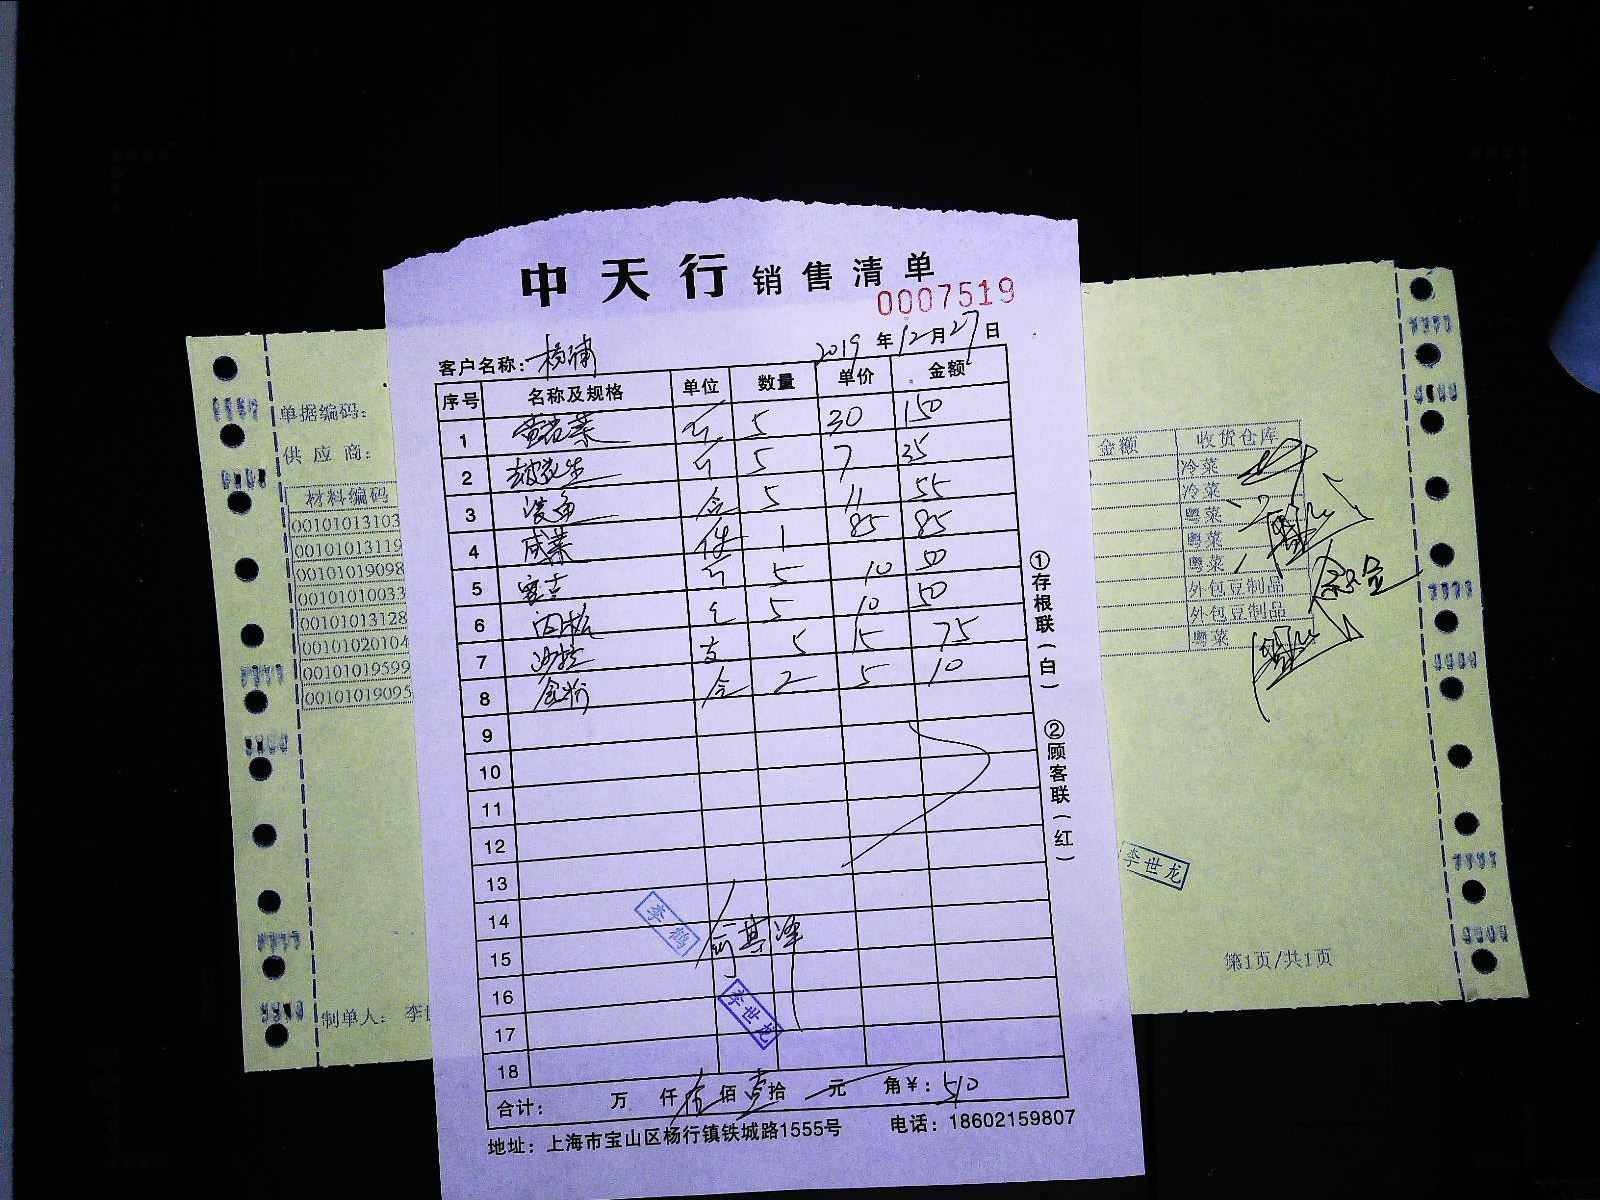 中天行 销售清单
0007519
客户名称：杨浦 2019年12月27日
序号 名称及规格 单位 数量 单价 金额
1 雪花菜 5 30 150
2 去皮花生 5 7 35
3 5 11 55
4 咸菜 件 1 85 85
5 5 10 50
6 5 10 50
7 沙拉 支 5 15 75
8 2 5 10
9
10
11
12
13
14
15
16
17
18
李鹤
李世龙
合计： 万 仟 伍佰 壹拾 元 角￥：510
地址：上海市宝山区杨行镇铁城路1555号 电话：18602159807
①存根联（白） ②顾客联（红）
单据编码：
供应商：
材料编码
00101013103
00101013119
00101019098
00101010033
00101013128
00101020104
00101019599
00101019095
制单人： 李世
金额 收货仓库
冷菜
冷菜
粤菜
粤菜
粤菜
外包豆制品
外包豆制品
粤菜
李世龙
第1页/共1页